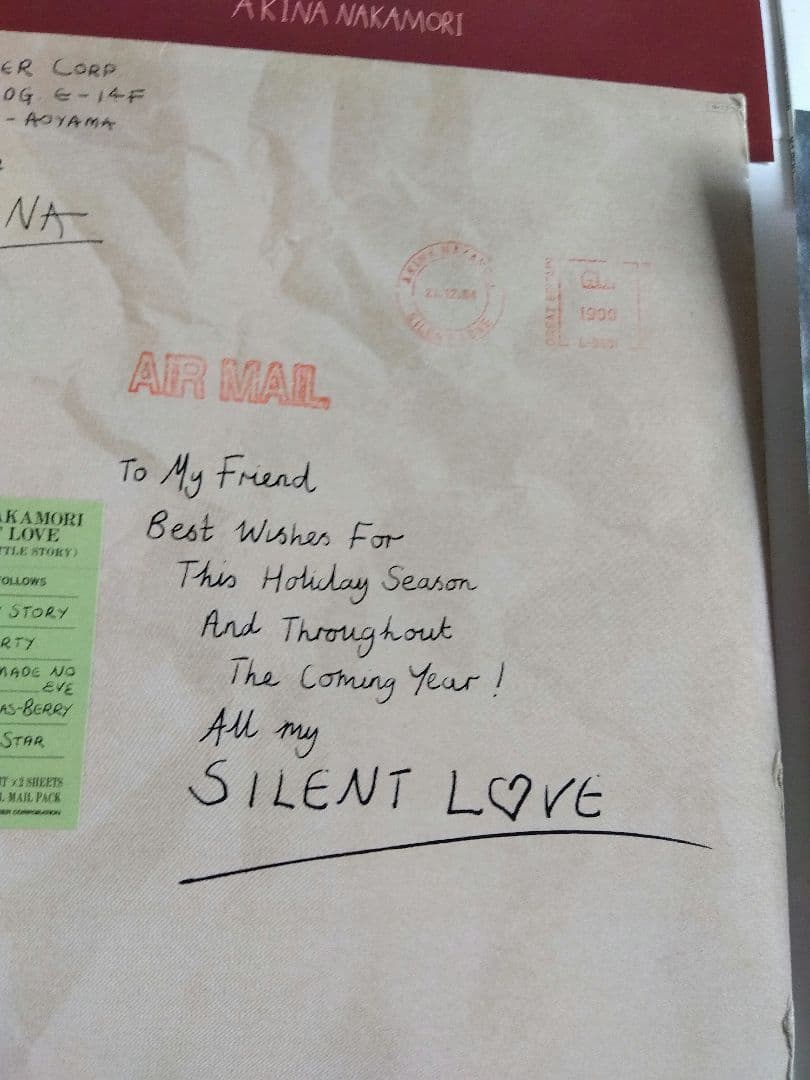 AKINA NAKAMORI
ER CORP
OG E-14F
- AOYAMA
NA
21.12.84
SILENT LOVE
GREAT
1900
AIR MAIL
To My Friend
Best Wishes For
This Holiday Season
And Throughout
The Coming Year !
All my
SILENT L♡VE
AKAMORI
LOVE
TTLE STORY)
OLLOWS
STORY
RTY
MADE NO
EVE
AS-BERRY
STAR
T x2 SHEETS
L MAIL PACK